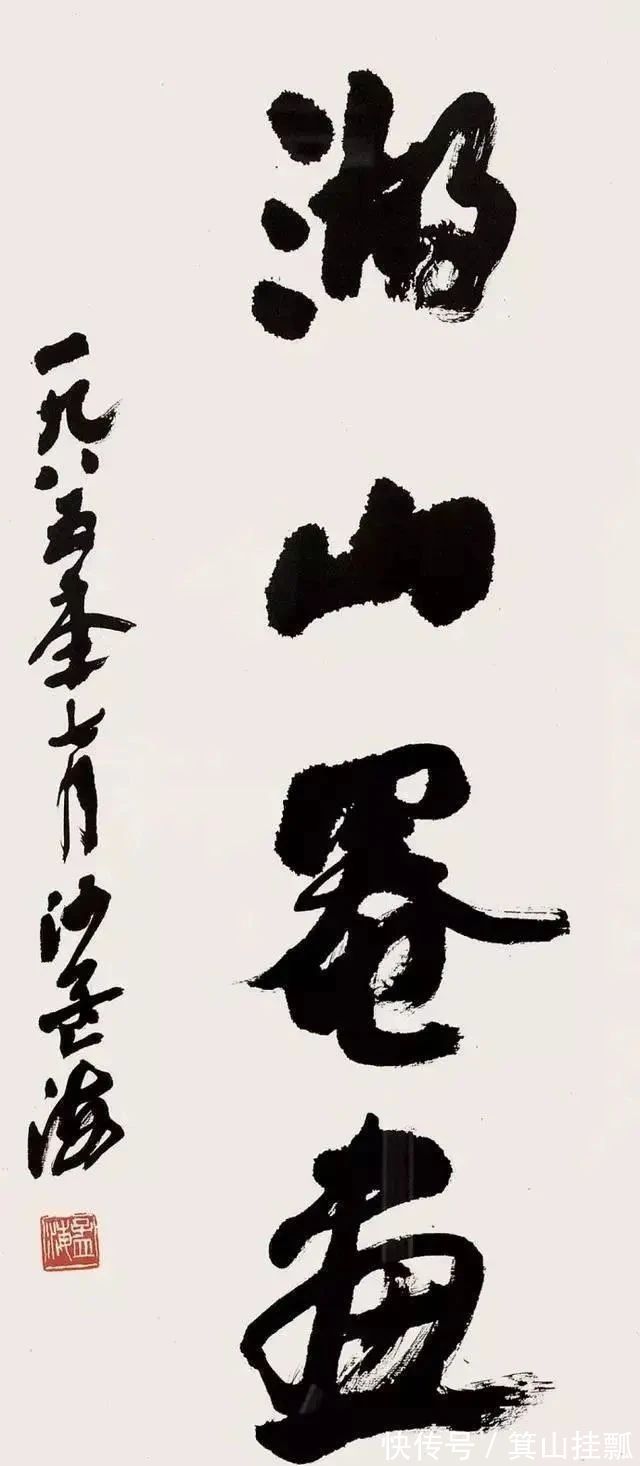 湖山罨畫
一九八五年七月沙孟海
孟海
快传号 / 箕山挂瓢